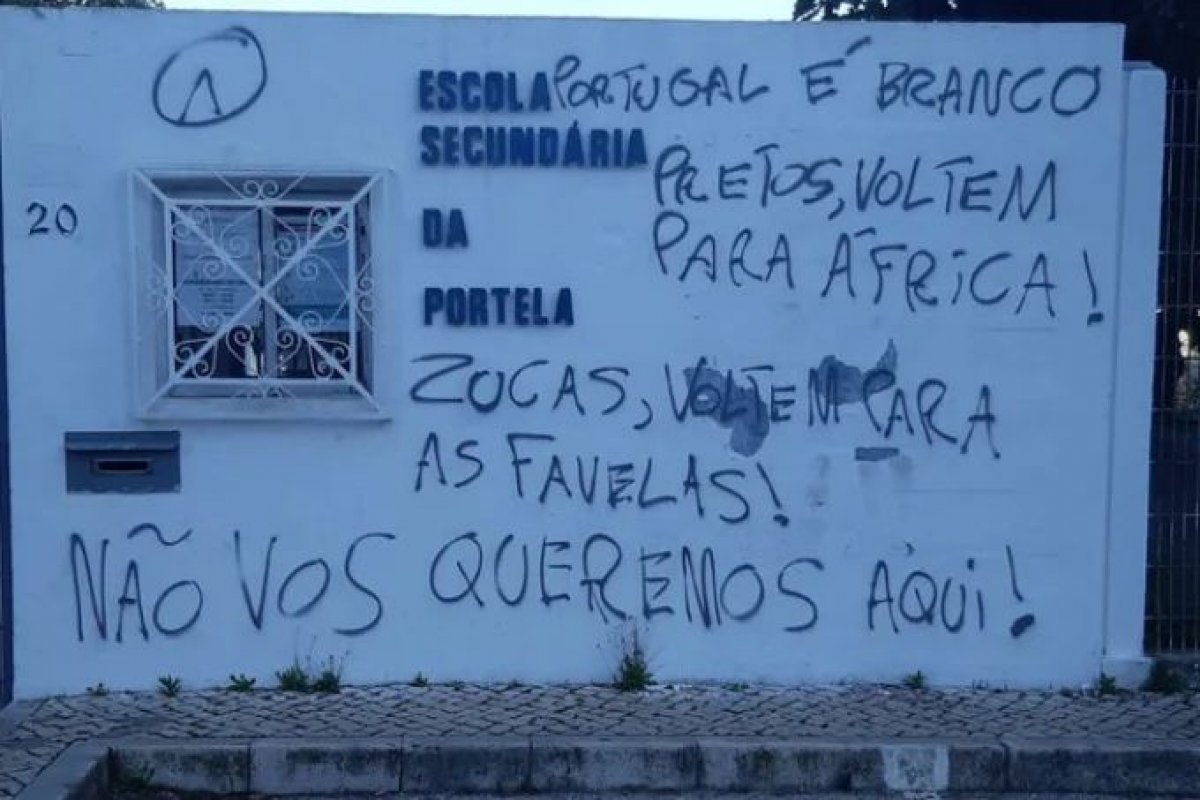 20
ESCOLA
SECUNDÁRIA
DA
PORTELA
PORTUGAL É BRANCO
PRETOS, VOLTEM
PARA ÁFRICA!
ZUCAS, VOLTEM PARA
AS FAVELAS!
NÃO VOS QUEREMOS AQUI!